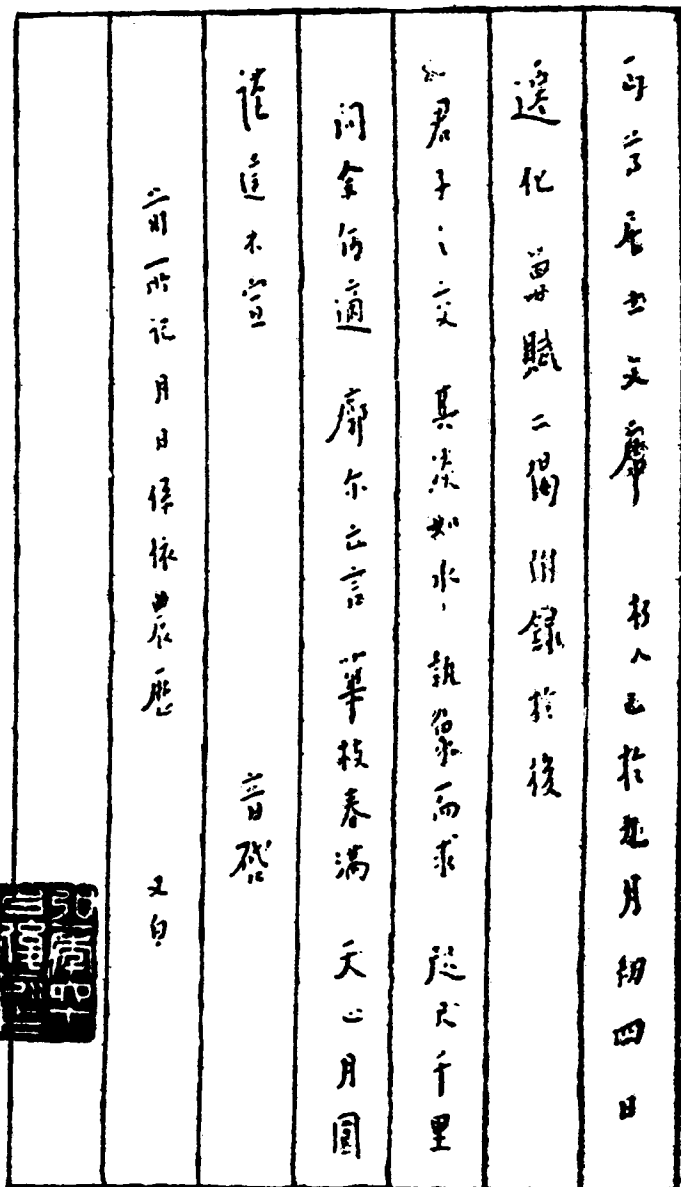 丏尊居士文席 朽人已於九月初四日
遷化 曾賦二偈 附錄於後
君子之交 其淡如水 執象而求 咫尺千里
問余何適 廓尔亡言 華枝春滿 天心月圓
謹達不宣 音啓
前所記月日係依農歷 又白